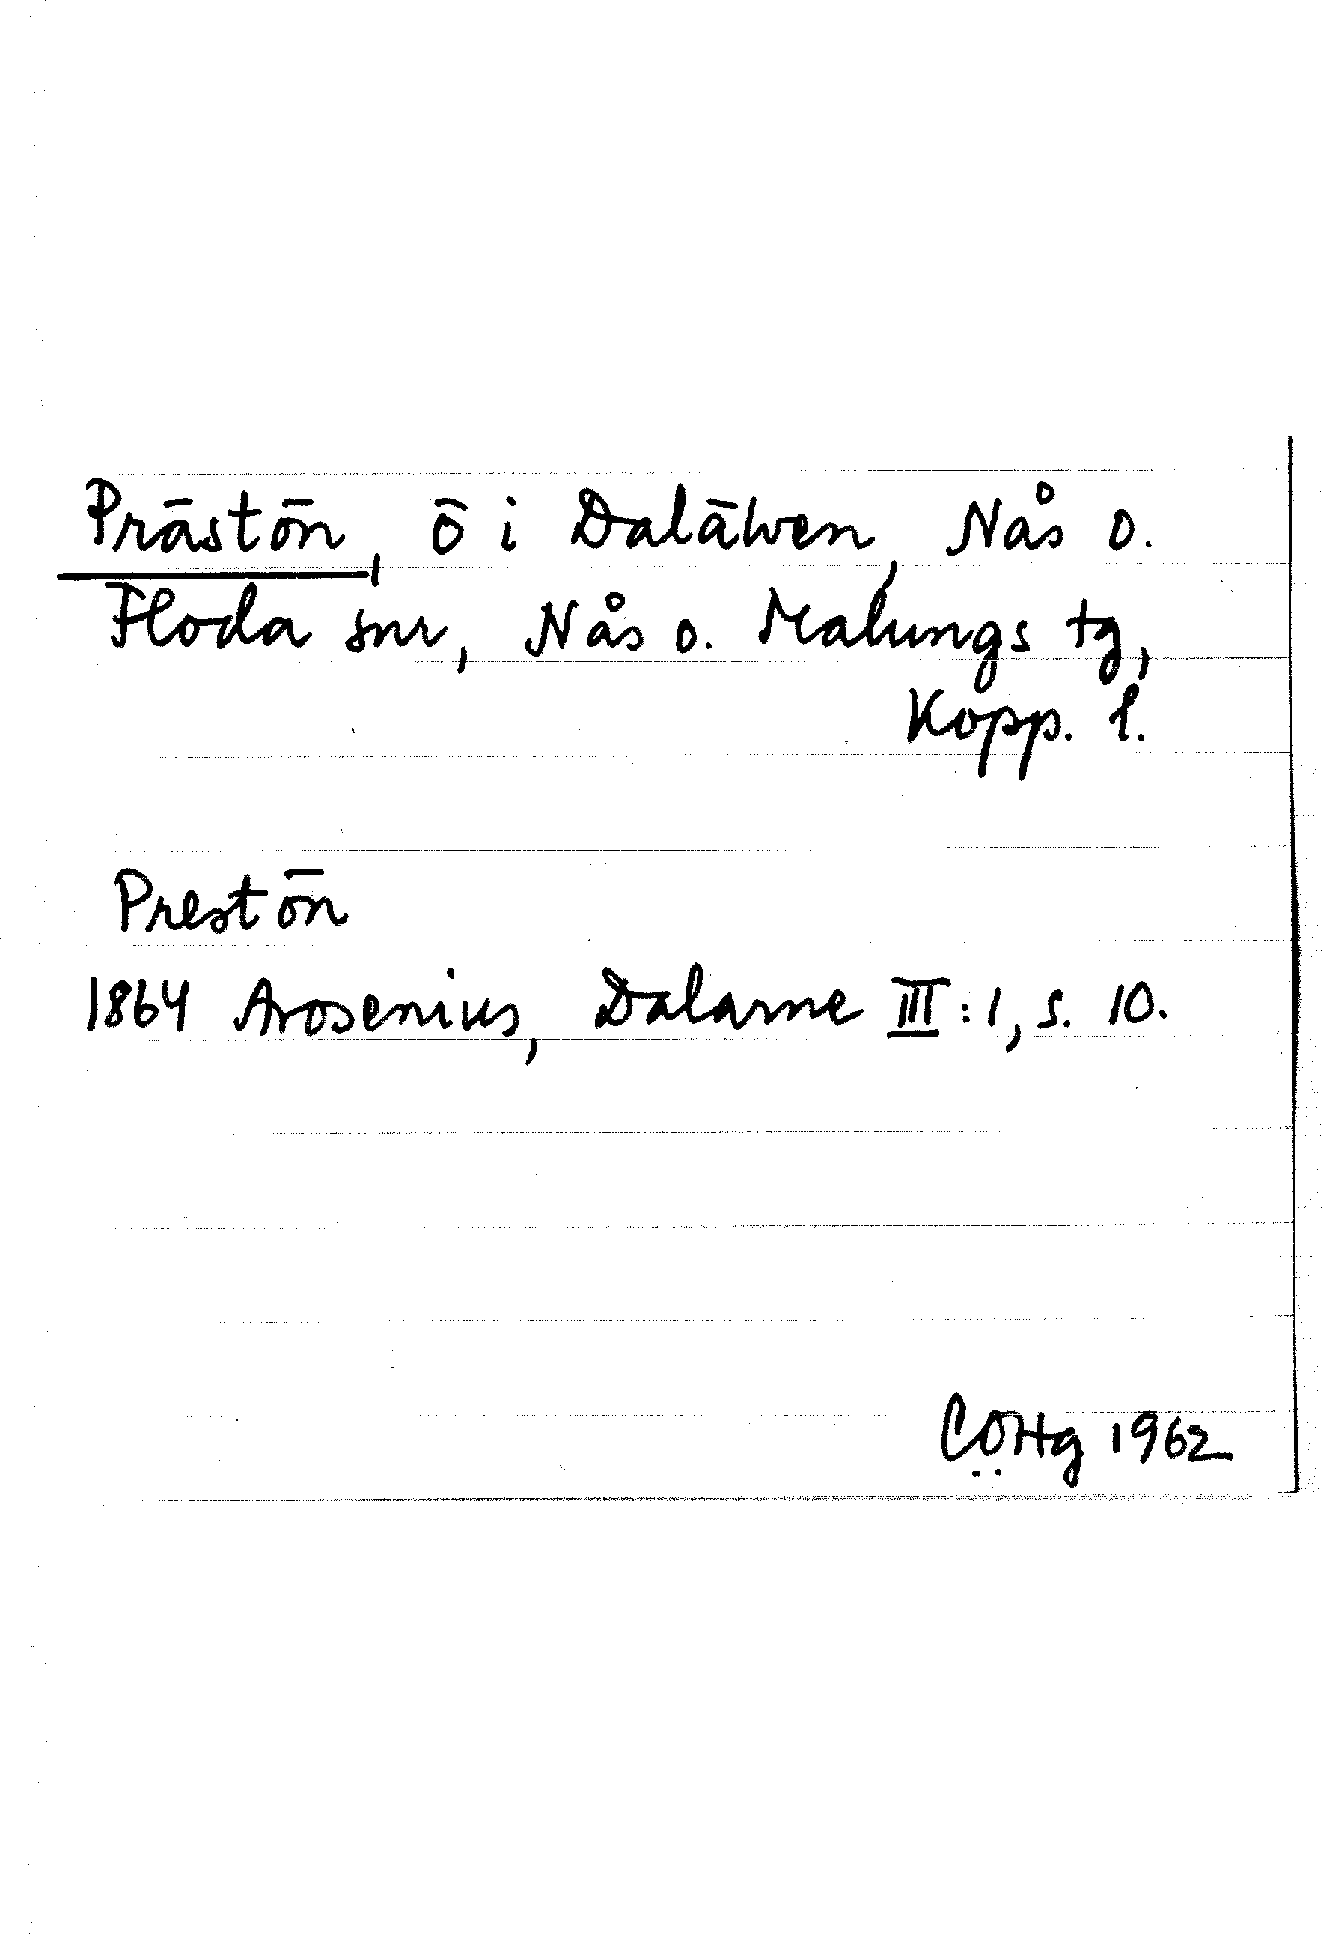 Prästön, ö i Dalälven, Nås o.
Floda snr, Nås o. Malungs tg,
Kopp. l.
Prestön
1864 Arosenius, Dalarne III:1, s. 10.
CÖHg 1962